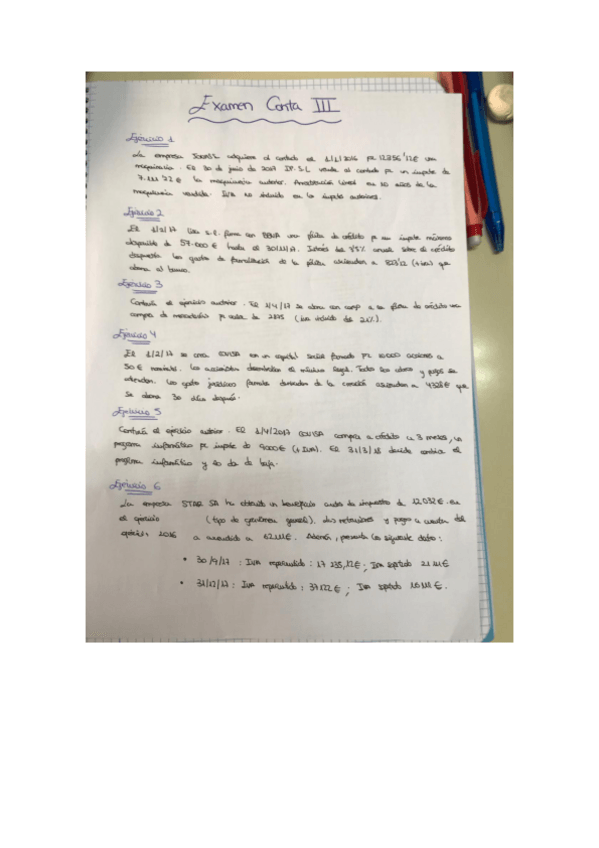 Examen Conta III
Ejercicio 1
La empresa SL adquiere al contado el 1/1/2016 por 12.356'12€ una
maquinaria. El 30 de junio de 2017 S.L vende al contado por un importe de
7.111'22€ la maquinaria anterior. Amortización lineal en 10 años de la
maquinaria vendida. IVA no incluido en los importes anteriores.
Ejercicio 2
El S.L. firma con BBVA una póliza de crédito por un importe máximo
disponible de 57.000€ hasta el 30/11/17. Interés del anual sobre el crédito
dispuesto. Los gastos de formalización de la póliza ascienden a 827'12 (+iva) que
abona al banco.
Ejercicio 3
Continúa el ejercicio anterior. El 1/4/17 se abona con cargo a la póliza de crédito una
compra de mercaderías por valor de 2875 (iva incluido del 21%).
Ejercicio 4
El 1/2/17 se crea COVISA con un capital social formado por 10.000 acciones a
50€ nominal. Los accionistas desembolsan el mínimo legal. Todos los cobros y pagos se
Los gastos jurídicos formales derivados de la creación ascienden a 4328€ que
se abona 30 días después.
Ejercicio 5
Continúa el ejercicio anterior. El 1/4/2017 COVISA compra a crédito a 3 meses, un
programa informático por importe de 9000€ (+IVA). El 31/3/18 decide cambiar el
programa informático y lo da de baja.
Ejercicio 6
La empresa STAR SA ha obtenido un beneficio antes de impuestos de 12.032€ en
el ejercicio (tipo de gravamen general). Las retenciones y pagos a cuenta del
ejercicio 2016 a ascendido a Además, presenta los siguientes datos:
• 30/9/17: IVA repercutido: 17 235,12€; IVA soportado
• 31/12/17: IVA repercutido: 37122€; IVA soportado